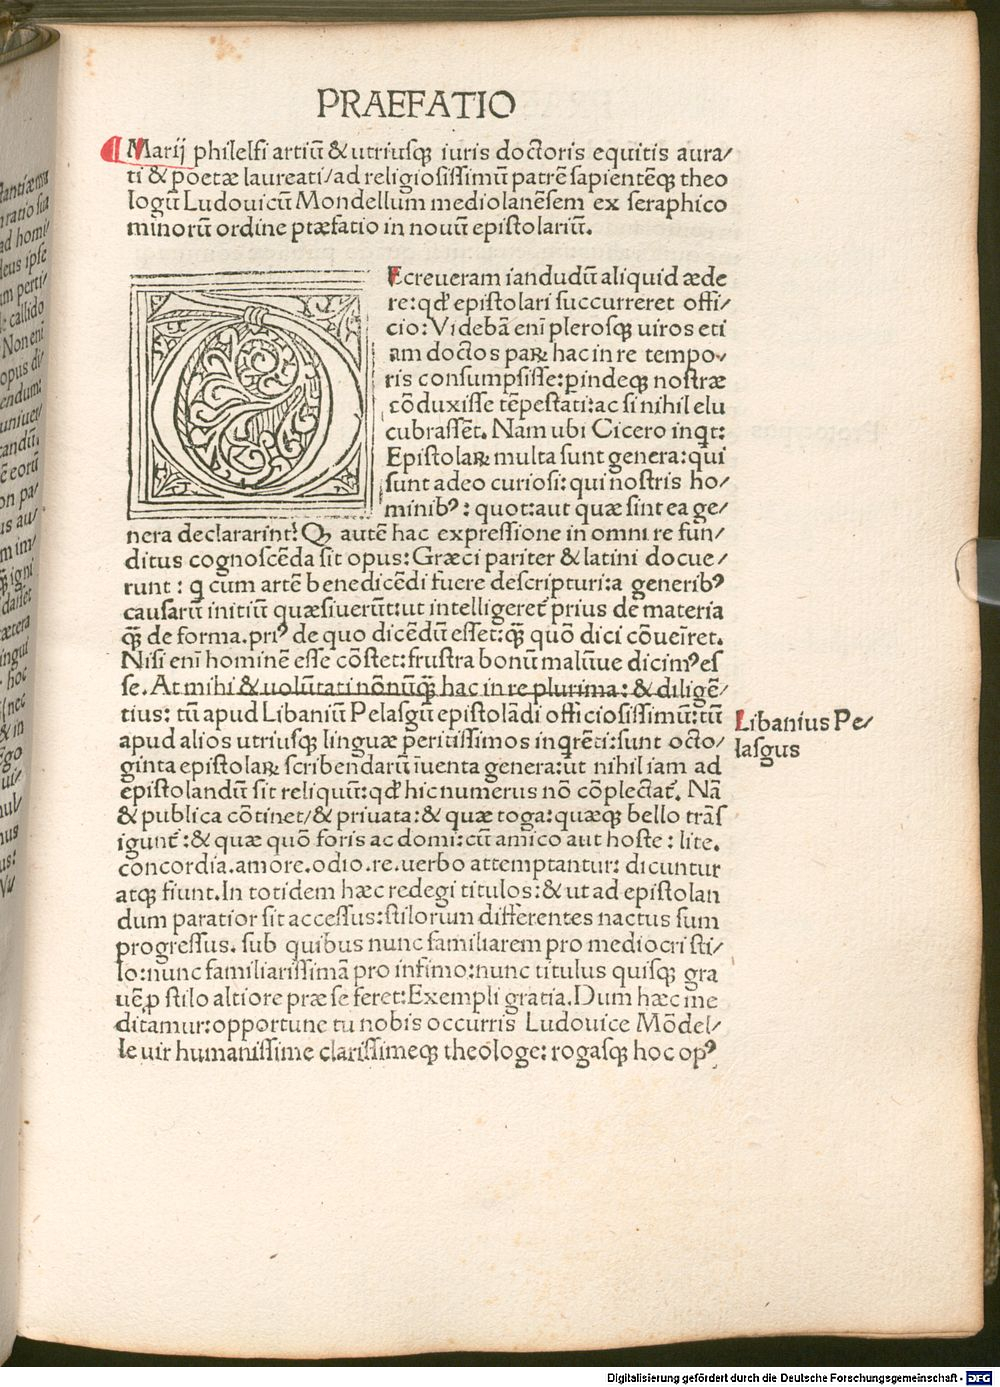 PRAEFATIO
Marij philelfi artiū & utriusq̨ iuris doctoris equitis aura/
ti & poetæ laureati/ad religiosissimū patrē sapientēq̨ theo
logū Ludouicū Mondellum mediolanēsem ex seraphico
minorū ordine præfatio in nouū epistolariū.
DEcreueram iandudū aliquid æde
re: qđ epistolari succurreret offi/
cio: Videbā enī plerosq̨ uiros eti
am doctos paꝝ hac in re tempo/
ris consumpsisse: ꝓindeq̨ nostræ
cōduxisse tēpestati: ac si nihil elu
cubrassēt. Nam ubi Cicero inqt:
Epistolaꝝ multa sunt genera: qui
sunt adeo curiosi: qui nostris ho/
minibꝰ: quot: aut quæ sint ea ge/
nera declararint? Qꝫ autē hac expressione in omni re fun/
ditus cognoscēda sit opus: Græci pariter & latini docue/
runt: q cum artē benedicēdi fuere descripturi: a generibꝰ
causarū initiū quæsiuerūt: ut intelligeret̄ prius de materia
q̄ȝ de forma. priꝰ de quo dicēdū esset: q̄ȝ quō dici cōueīret.
Nisi enī hominē esse cōstet: frustra bonū malūue dicimꝰ es
se. At mihi & uolūtati nōnūq̄ȝ hac in re plurima: & diligē/
tius: tū apud Libaniū Pelasgū epistolādi officiosissimū: tū
apud alios utriusq̨ linguæ peritissimos inqrēti: sunt octo/
ginta epistolaꝝ scribendarū iuenta genera: ut nihil iam ad
epistolandū sit reliquū: qđ hic numerus nō cōplectat̄. Nā
& publica cōtinet/& priuata: & quæ toga: quæq̨ bello trās
igunt̄: & quæ quō foris ac domi: cū amico aut hoste: lite.
concordia. amore. odio. re. uerbo attemptantur: dicuntur
atq̨ fiunt. In totidem hæc redegi titulos: & ut ad epistolan
dum paratior sit accessus: stilorum differentes nactus sum
progressus. sub quibus nunc familiarem pro mediocri sti/
lo: nunc familiarissimā pro infimo: nunc titulus quisq̨ gra
uē ꝓ stilo altiore præ se feret: Exempli gratia. Dum hæc me
ditamur: opportune tu nobis occurris Ludouice Mōdel/
le uir humanissime clarissimeq̨ theologe: rogasq̨ hoc opꝰ
Libanius Pe/
lasgus
Digitalisierung gefördert durch die Deutsche Forschungsgemeinschaft - DFG